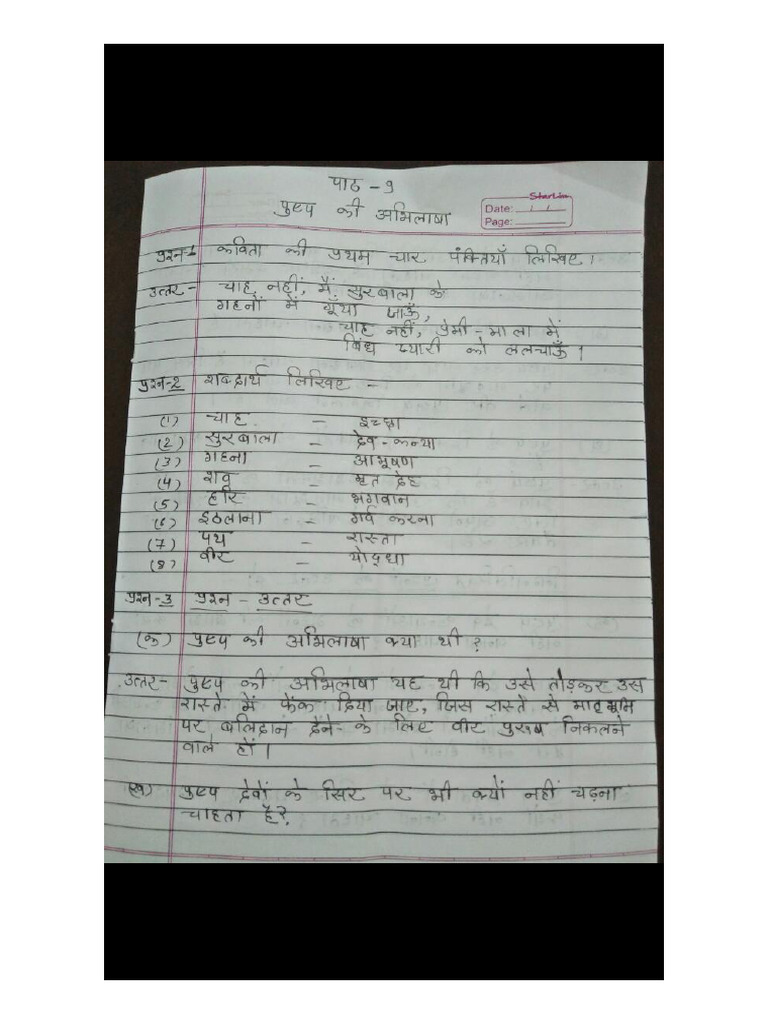 पाठ - १
पुष्प की अभिलाषा
Starline
Date: / /
Page:
प्रश्न-1 कविता की प्रथम चार पंक्तियाँ लिखिए।
उत्तर- चाह नहीं, मैं सुरबाला के
गहनों में गूँथा जाऊँ,
चाह नहीं, प्रेमी-माला में
बिंध प्यारी को ललचाऊँ।
प्रश्न-2 शब्दार्थ लिखिए -
(1) चाह - इच्छा
(2) सुरबाला - देव-कन्या
(3) गहना - आभूषण
(4) शव - मृत देह
(5) हरि - भगवान
(6) इठलाना - गर्व करना
(7) पथ - रास्ता
(8) वीर - योद्धा
प्रश्न-3 प्रश्न - उत्तर
(क) पुष्प की अभिलाषा क्या थी?
उत्तर- पुष्प की अभिलाषा यह थी कि उसे तोड़कर उस
रास्ते में फेंक दिया जाए, जिस रास्ते से मातृभूमि
पर बलिदान देने के लिए वीर पुरुष निकलने
वाले हों।
(ख) पुष्प देवों के सिर पर भी क्यों नहीं चढ़ना
चाहता है?